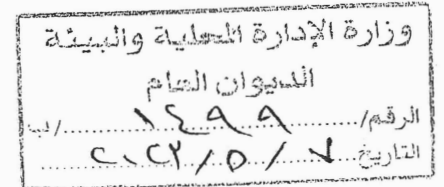 وزارة الإدارة المحلية والبيئة
الديوان العام
الرقم/ ١٤٩٩ /ب
التاريخ ٧ / ٥ / ٢٠٢٣